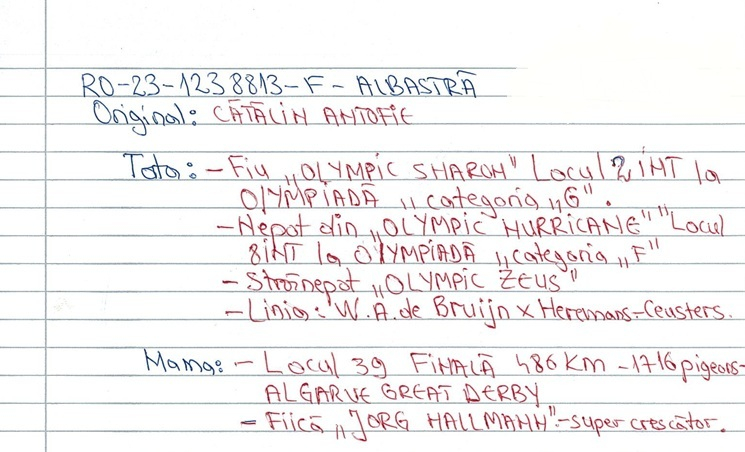 RO-23-1238813-F-ALBASTRĂ
Original: CĂTĂLIN ANTOFIE
Tata: - Fiu „OLYMPIC SHARON" Locul 2 INT la
OlYMPIADĂ „categoria „G".
- Nepot din „OLYMPIC HURRICANE" "Locul
8INT la OlYMPIADĂ „categoria „F"
- Strănepot „OLYMPIC ZEUS"
- Linia: W.A. de Bruijn x Heremans-Ceusters.
Mama: - Locul 39 FINALĂ 486 KM - 1716 pigeons-
ALGARVE GREAT DERBY
- Fiică „JORG HALLMANN"-super crescător.